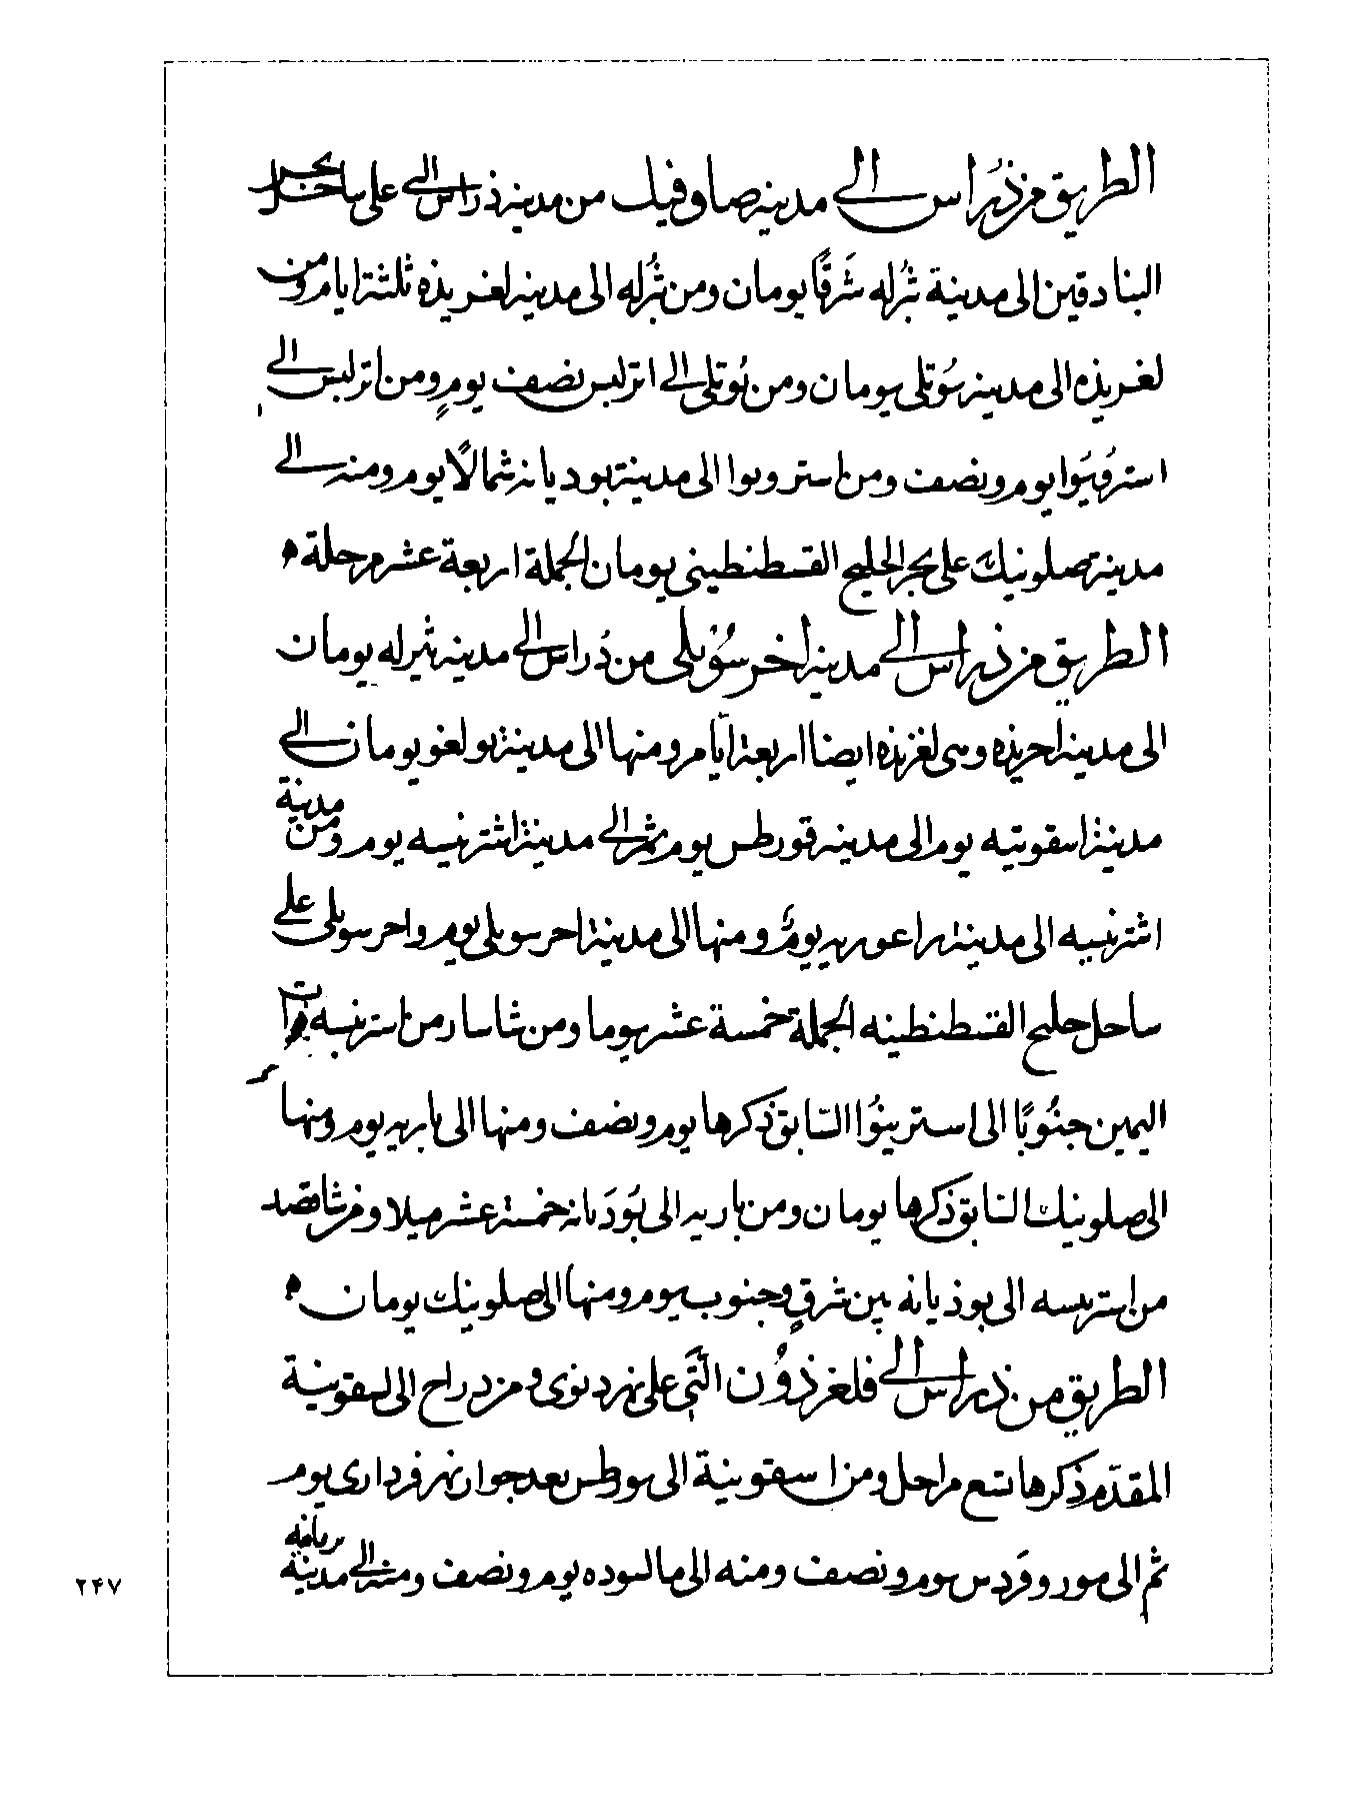 الطريق من ذراس الى مدينة صاوفيك من مدينة ذراس الى على ساحل بحر
البنادقين الى مدينة تبرله شرقًا يومان ومن تبرله الى مدينة لغريذه ثلثة ايام ومن
لغريذه الى مدينة بوتلى يومان ومن بوتلى الى اترلبس نصف يوم ومن اترلبس الى
استرقيوا يوم ونصف ومن استروبوا الى مدينة بوديانه شمالًا يوم ومنه الى
مدينة صلونيك على بحر الخليج القسطنطينى يومان الجملة اربعة عشر مرحلة ه
الطريق من ذراس الى مدينة اخرسوبلى من دراس الى مدينة تبرله يومان
الى مدينة احريذه وهى لغريذه ايضا اربعة ايام ومنها الى مدينة بولغو يومان الى
مدينة اسقوبيه يوم الى مدينة قورطس يوم ثم الى مدينة اشترنيسه يوم ومن مدينة
اشترنيسه الى مدينة يوم ومنها الى مدينة احرسوبلى يوم واحرسوبلى على
ساحل خليج القسطنطينيه الجملة خمسة عشر يوما ومن شا سار من استرنيسه ذات
اليمين جنوبًا الى استرينوا السابق ذكرها يوم ونصف ومنها الى باريه يوم ومنها
الى صلونيك السابق ذكرها يومان ومن باريه الى بوديانه خمسة عشر ميلا ومن شا قصد
من استرنيسه الى بوذيانه بين شرق وجنوب يوم ومنها الى صلونيك يومان ه
الطريق من ذراس الى فلغرذون التى على نهر دنوى ومن دراح الى اسقوبية
المقدم ذكرها تسع مراحل ومن اسقوبية الى يورطس بعد جواز نهر فردارى يوم
ثم الى يوم ونصف ومنه الى مالسوده يوم ونصف ومنه الى مدينة
٢٤٧